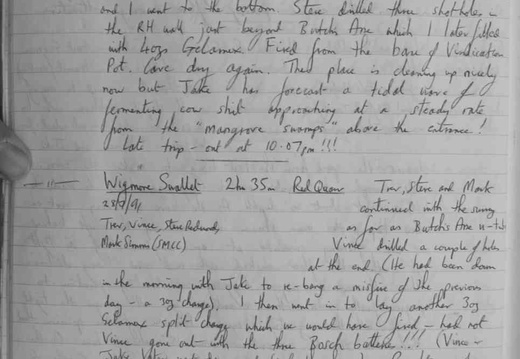 and I went to the bottom. Steve drilled three shotholes in
the RH wall just beyond Butch's Arse which I later filled
with 4ozs Gelamex. Fired from the base of Vindication
Pot. Cave dry again. This place is cleaning up nicely
now but Jake has forecast a tidal wave of
fermenting cow shit approaching at a steady rate
from the "mangrove swamps" above the entrance!
Late trip - out at 10.07pm!!!
Wigmore Swallet 2hr 35m Red Quar
Trev, Steve and Mark
28/7/91
continued with the survey
Trev, Vince, Steve Redwood,
as far as Butch's Arse u-tube
Mark Simms (SMCC)
Vince drilled a couple of holes
at the end (He had been down
in the morning with Jake to re-bang a misfire of the previous
day - a 3oz charge). I then went in to lay another 3oz
Gelamex split-charge which we would have fired - had not
Vince gone out with the three Bosch batteries!!! (Vince -
Jake later